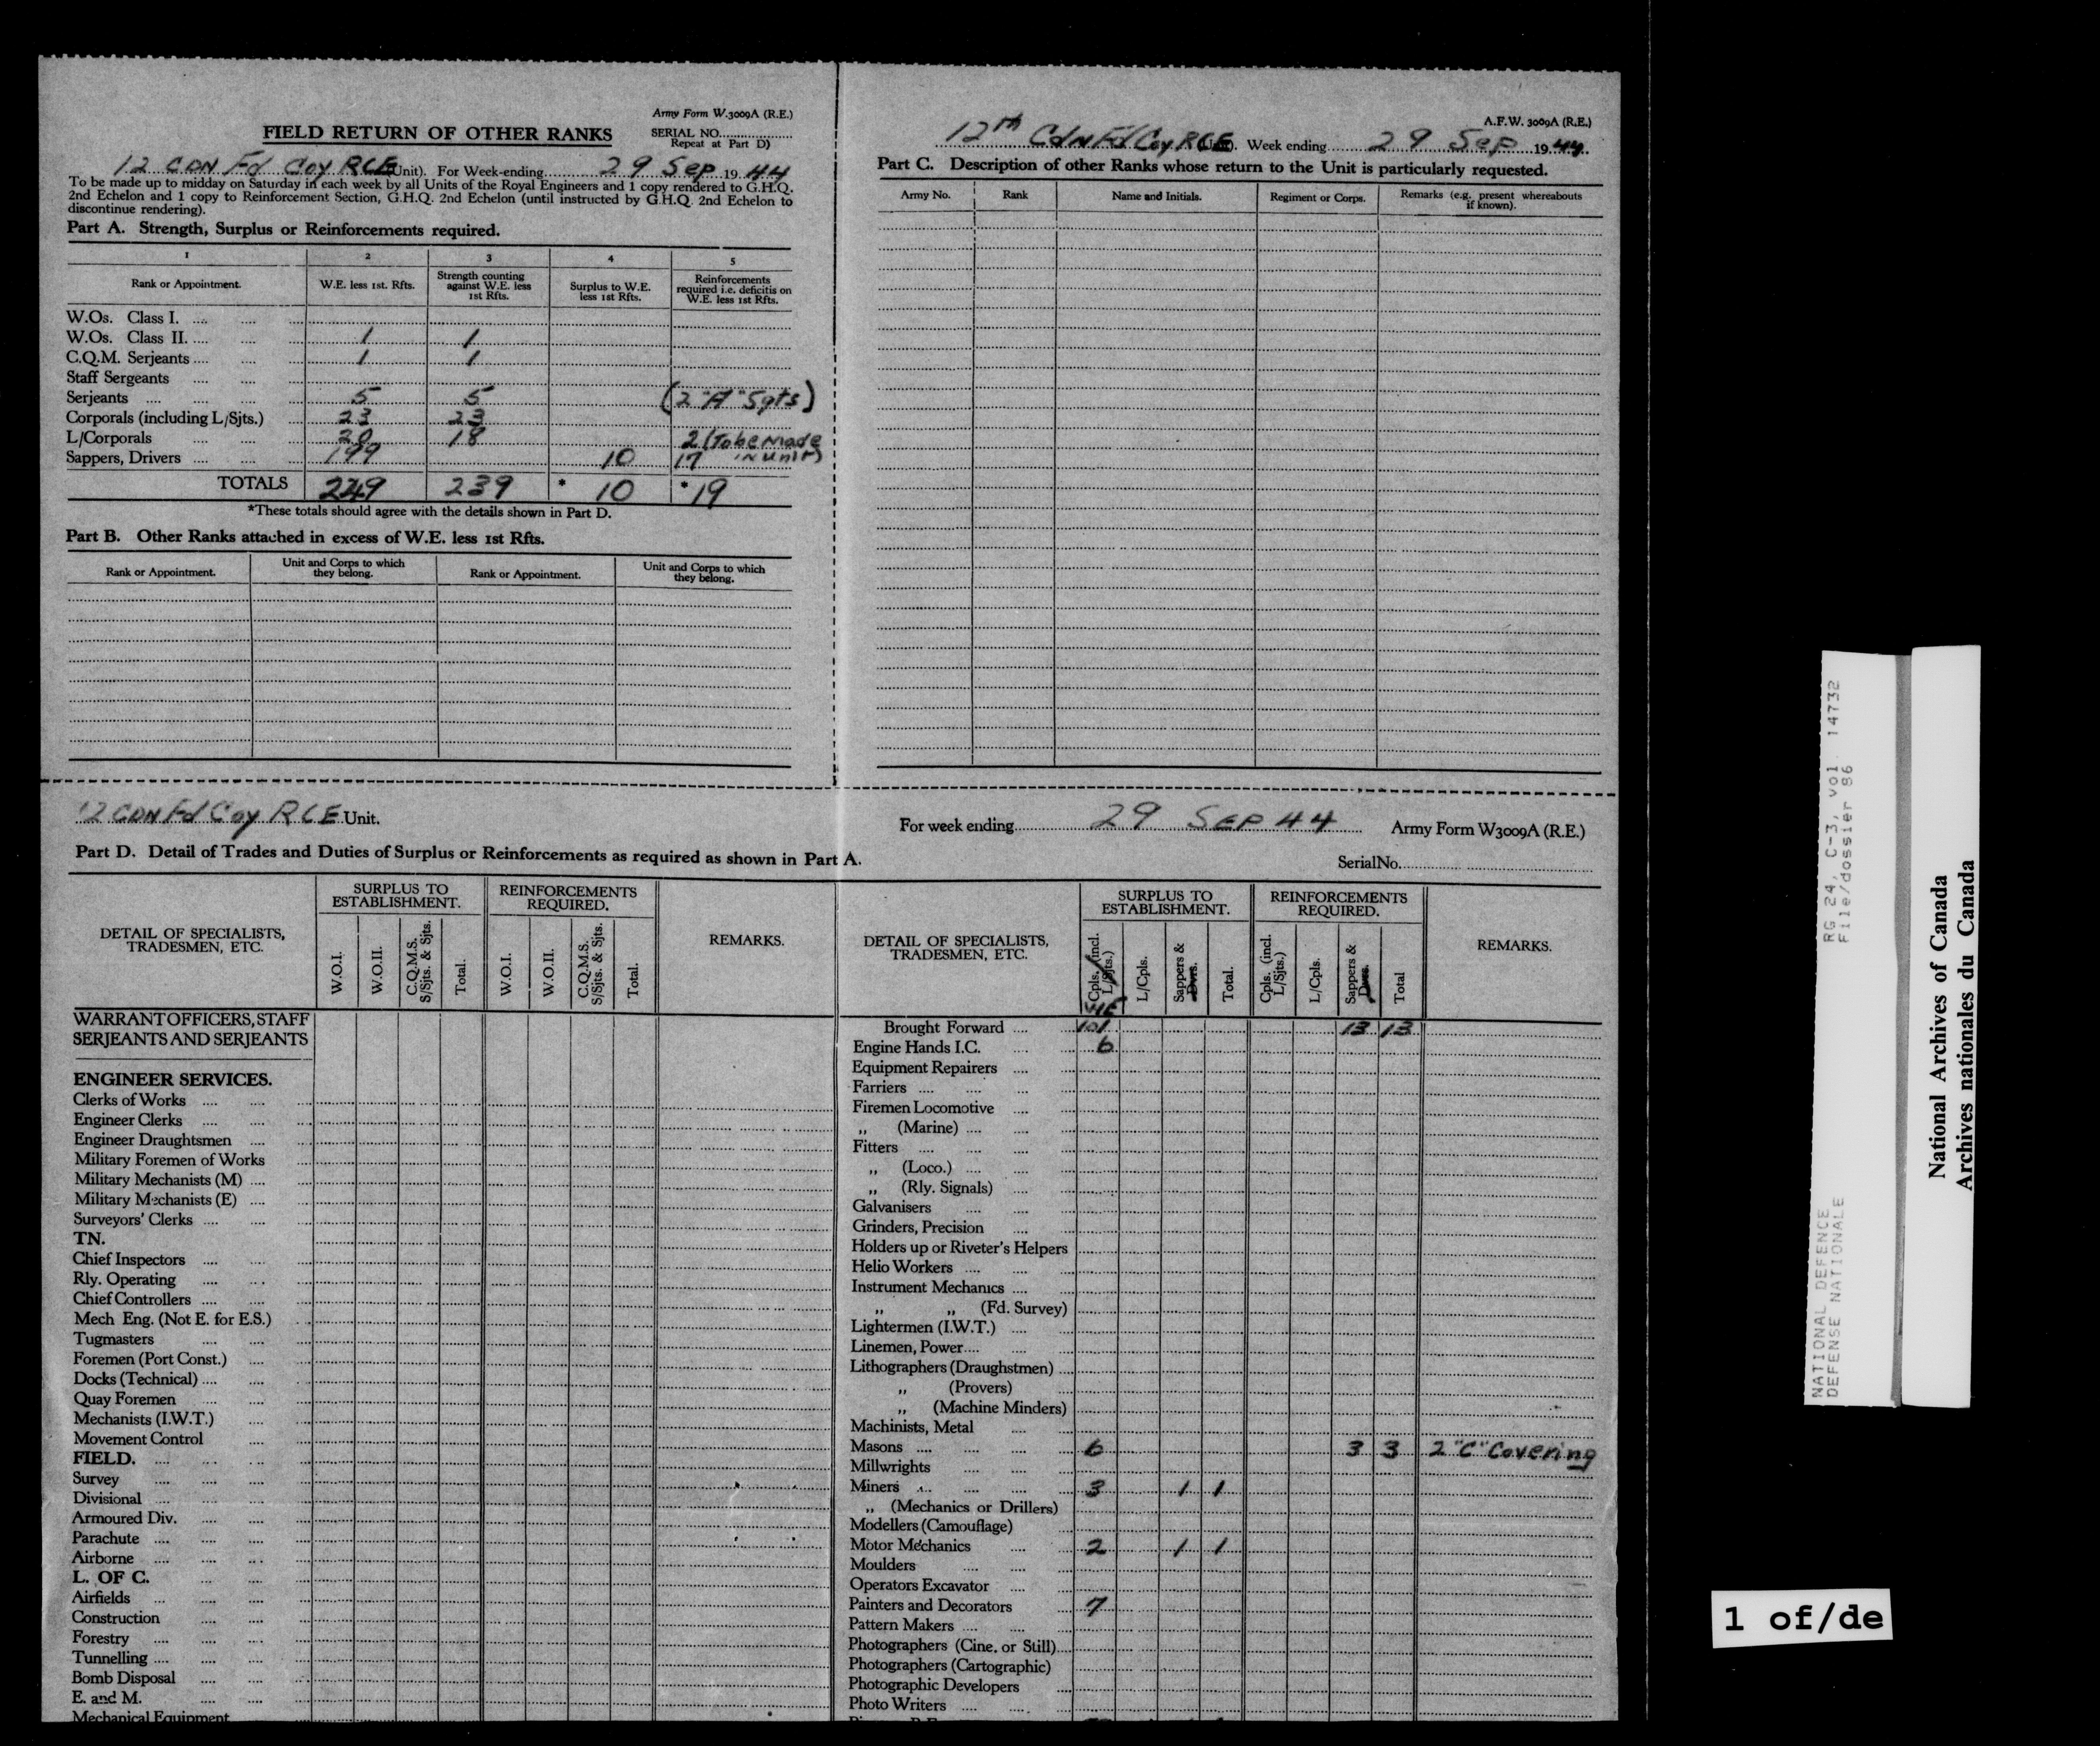 Army Form W.3009A (R.E.)
FIELD RETURN OF OTHER RANKS
SERIAL NO...................
Repeat at Part D)
12 CDN Fd Coy RCE Unit). For Week-ending 29 Sep 1944
To be made up to midday on Saturday in each week by all Units of the Royal Engineers and 1 copy rendered to G.H.Q.
2nd Echelon and 1 copy to Reinforcement Section, G.H.Q. 2nd Echelon (until instructed by G.H.Q. 2nd Echelon to
discontinue rendering).
Part A. Strength, Surplus or Reinforcements required.
1 2 3 4 5
Rank or Appointment. W.E. less 1st. Rfts. Strength counting against W.E. less 1st Rfts. Surplus to W.E. less 1st Rfts. Reinforcements required i.e. deficitis on W.E. less 1st Rfts.
W.Os. Class I.
W.Os. Class II. 1 1
C.Q.M. Serjeants 1 1
Staff Sergeants
Serjeants 5 5 (2 "A" Sgts)
Corporals (including L/Sjts.) 23 23
L/Corporals 20 18 2 (To be made
Sappers, Drivers 199 10 17 in unit)
TOTALS 249 239 * 10 * 19
*These totals should agree with the details shown in Part D.
Part B. Other Ranks attached in excess of W.E. less 1st Rfts.
Rank or Appointment. Unit and Corps to which they belong. Rank or Appointment. Unit and Corps to which they belong.
A.F.W. 3009A (R.E.)
12th Cdn Fd Coy RCE Week ending 29 Sep 1944
Part C. Description of other Ranks whose return to the Unit is particularly requested.
Army No. Rank Name and Initials. Regiment or Corps. Remarks (e.g. present whereabouts if known).
12 CDN Fd Coy RCE Unit.
For week ending 29 SEP 44 Army Form W3009A (R.E.)
Part D. Detail of Trades and Duties of Surplus or Reinforcements as required as shown in Part A.
Serial No.
DETAIL OF SPECIALISTS, TRADESMEN, ETC. SURPLUS TO ESTABLISHMENT. REINFORCEMENTS REQUIRED. REMARKS.
W.O.I. W.O.II. C.Q.M.S. S/Sjts. & Sjts. Total. W.O.I. W.O.II. C.Q.M.S. S/Sjts. & Sjts. Total.
WARRANT OFFICERS, STAFF
SERJEANTS AND SERJEANTS
ENGINEER SERVICES.
Clerks of Works
Engineer Clerks
Engineer Draughtsmen
Military Foremen of Works
Military Mechanists (M)
Military Mechanists (E)
Surveyors' Clerks
TN.
Chief Inspectors
Rly. Operating
Chief Controllers
Mech Eng. (Not E. for E.S.)
Tugmasters
Foremen (Port Const.)
Docks (Technical)
Quay Foremen
Mechanists (I.W.T.)
Movement Control
FIELD.
Survey
Divisional
Armoured Div.
Parachute
Airborne
L. OF C.
Airfields
Construction
Forestry
Tunnelling
Bomb Disposal
E. and M.
Mechanical Equipment
DETAIL OF SPECIALISTS, TRADESMEN, ETC. SURPLUS TO ESTABLISHMENT. REINFORCEMENTS REQUIRED. REMARKS.
Cpls. (incl. L/Sjts.) L/Cpls. Sappers & Dvrs. Total. Cpls. (incl. L/Sjts.) L/Cpls. Sappers & Dvrs. Total
WE
Brought Forward 101 13 13
Engine Hands I.C. 6
Equipment Repairers
Farriers
Firemen Locomotive
,, (Marine)
Fitters
,, (Loco.)
,, (Rly. Signals)
Galvanisers
Grinders, Precision
Holders up or Riveter's Helpers
Helio Workers
Instrument Mechanics
,, ,, (Fd. Survey)
Lightermen (I.W.T.)
Linemen, Power
Lithographers (Draughstmen)
,, (Provers)
,, (Machine Minders)
Machinists, Metal
Masons 6 3 3 2 "C" Covering
Millwrights
Miners 3 1 1
,, (Mechanics or Drillers)
Modellers (Camouflage)
Motor Mechanics 2 1 1
Moulders
Operators Excavator
Painters and Decorators 7
Pattern Makers
Photographers (Cine. or Still)
Photographers (Cartographic)
Photographic Developers
Photo Writers
NATIONAL DEFENCE RG 24, C-3, vol. 14732
DEFENSE NATIONALE File/dossier 86
National Archives of Canada
Archives nationales du Canada
1 of/de